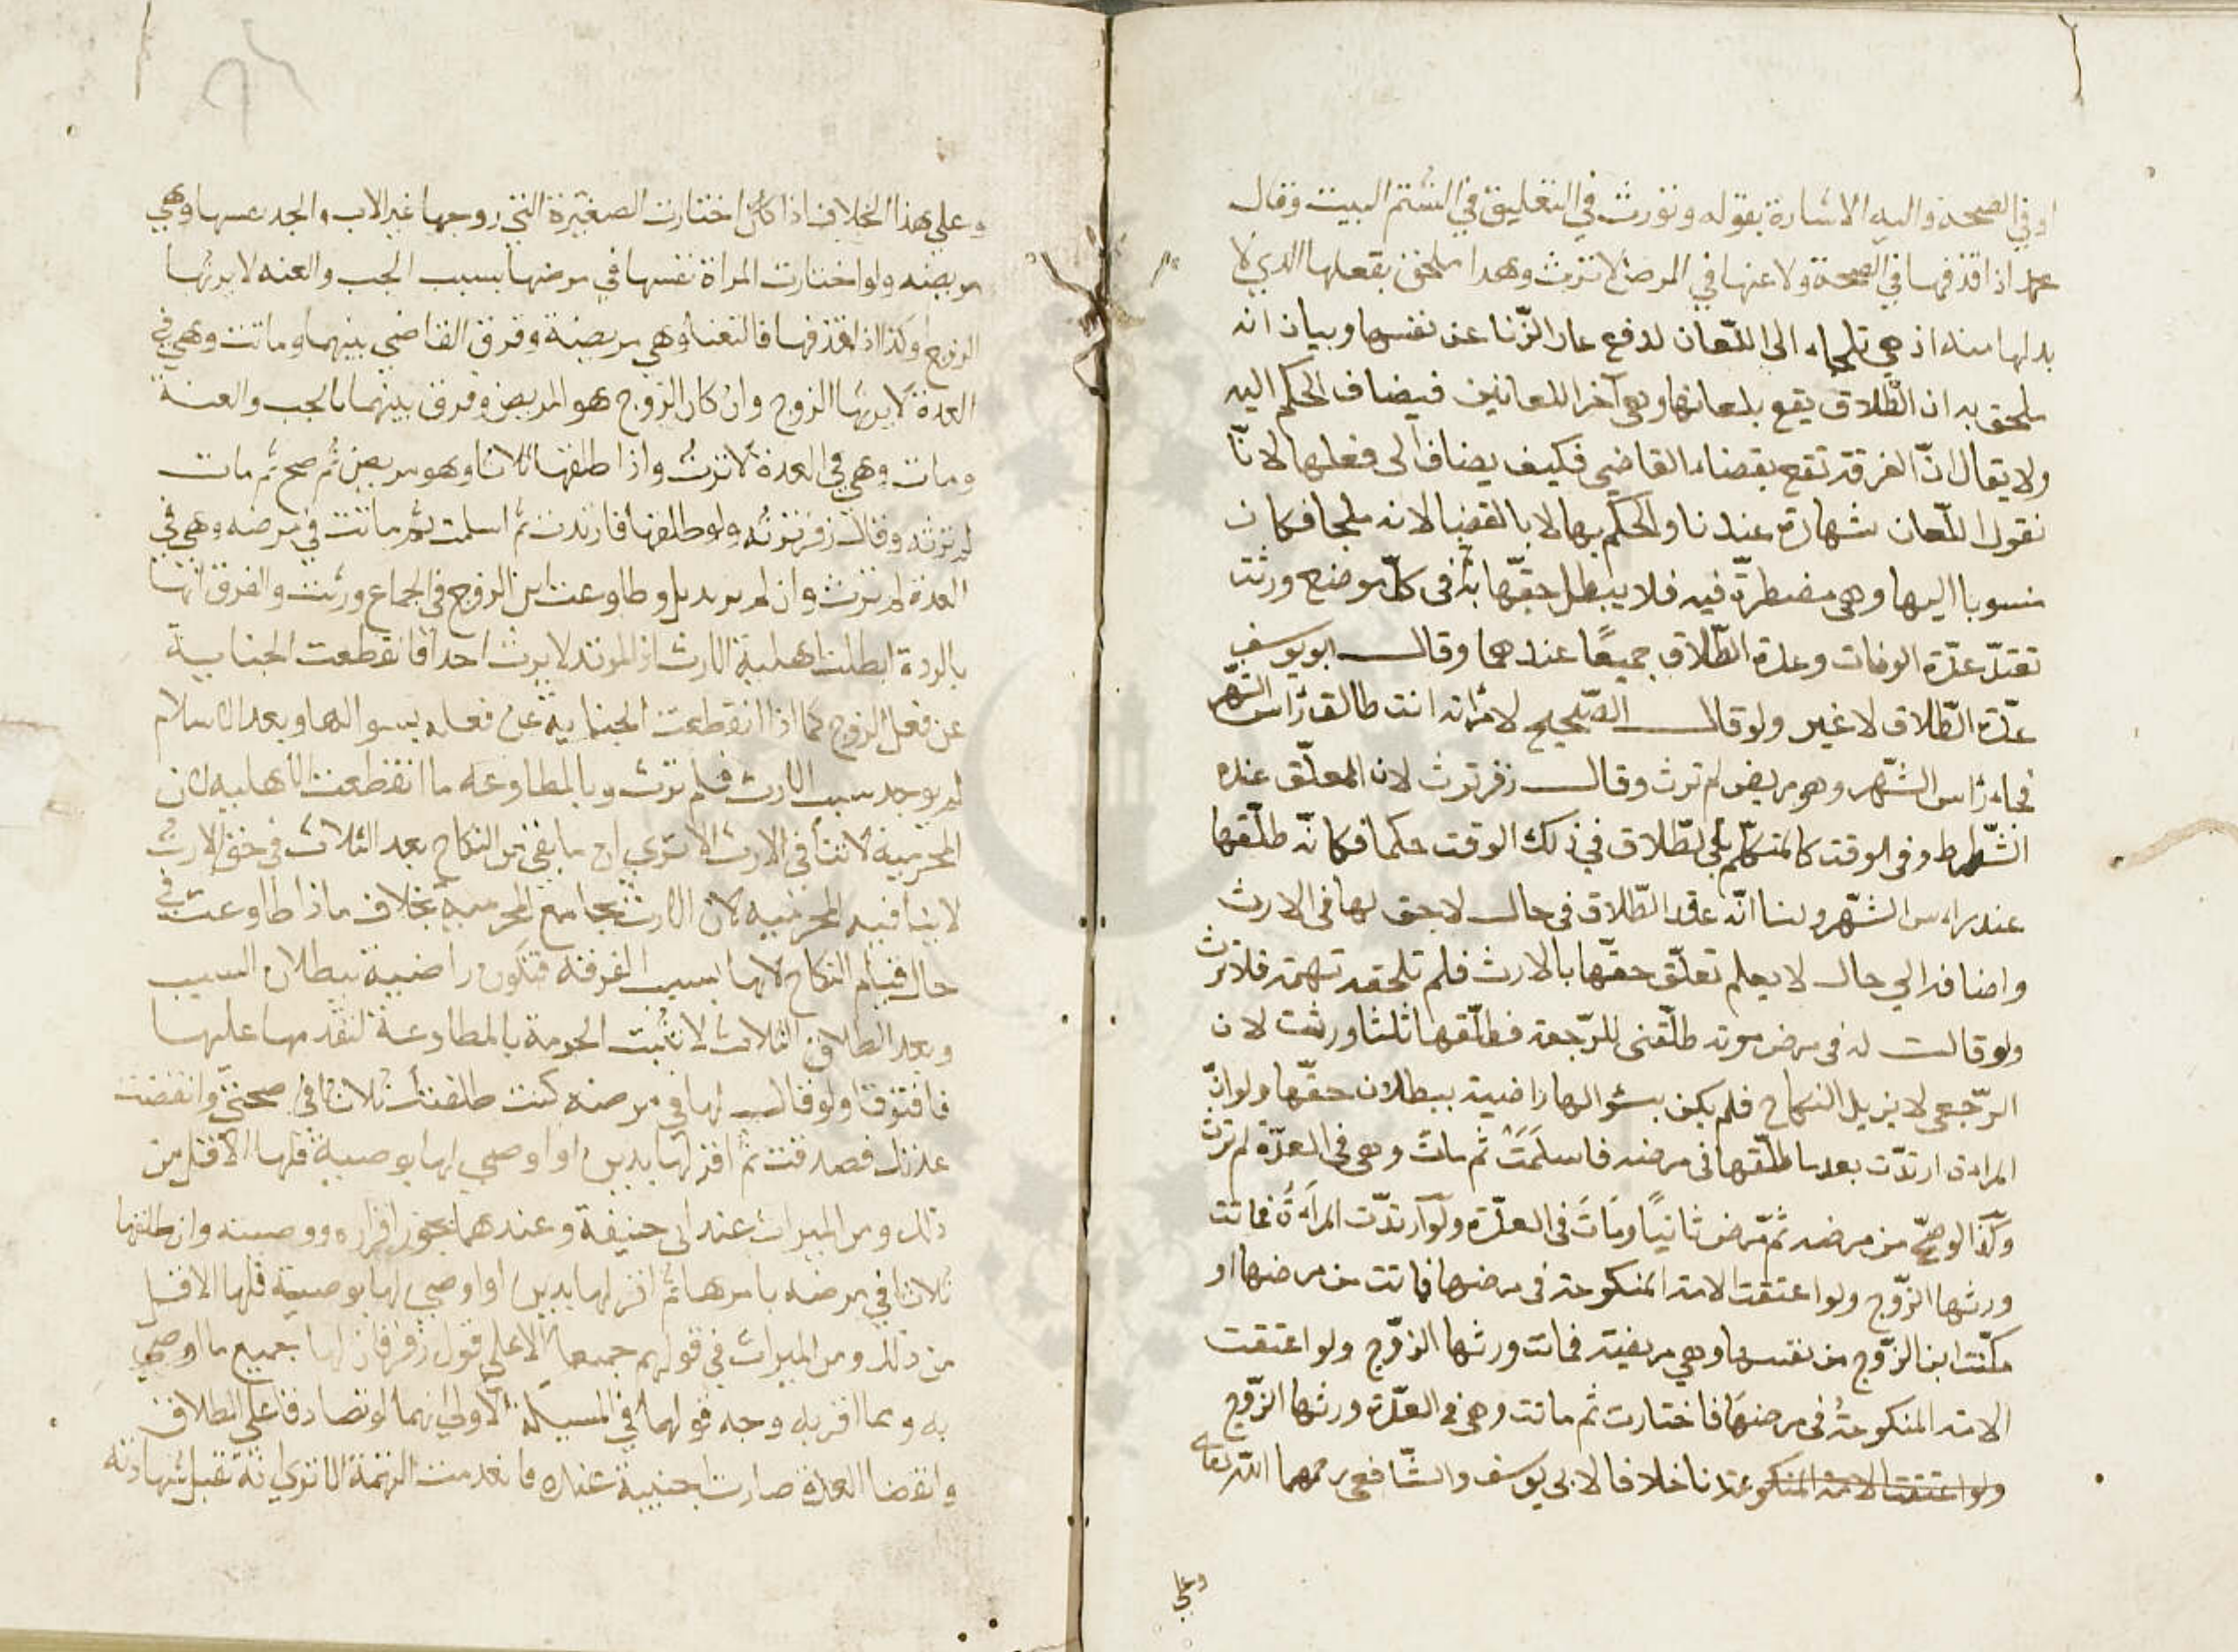 او في الصحة واليه الاشارة بقوله وتورث في التعليق في الستة البيت وقال
محمد اذا قذفها في الصحة ولاعنها في المرض لا ترث وهذا ملحق بفعلها الذي لا
بد لها منه اذ هي تلجاء الى اللّعان لدفع عار الزّنا عن نفسها وبيان انه
ملحق به ان الطّلاق يقع بلعانها وهي آخر اللعانين فيضاف الحكم اليه
ولا يقال انّ الفرقة تقع بقضاء القاضي فكيف يضاف الى فعلها لانّا
نقول اللّعان شهادة عندنا والحكم بها لا بالقضا لانه ملجا فكان
منسوبا اليها وهي مضطرّة فيه فلا يبطل حقّها ثم في كلّ موضع ورثت
تعتدّ عدّة الوفات وعدة الطّلاق جميعًا عندهما وقال ابو يوسف
عدّة الطّلاق لا غير ولو قال الصّحيح لامرأته انت طالق رأس الشّهر
فجاء رأس الشّهر وهو مريض لم ترث وقال زفر ترث لان المعلّق عنده
الشّرط وفي الوقت كالمتكلّم بالطّلاق في ذلك الوقت حكما فكانّه طلّقها
عند راس الشّهر ولنا انّه عقد الطّلاق في حال لا حق لها في الارث
واضافه الي حال لا يعلم تعلّق حقّها بالارث فلم تلحقه تهمة فلا ترث
ولو قالت له في مرض موته طلّقني للرّجعة فطلّقها ثلثا ورثت لان
الرّجعي لا يزيل النكاح فلم يكن بسؤالها راضية ببطلان حقّها ولو انّ
المراة ارتدّت بعد ما طلّقها في مرضه فاسلمَتْ ثم مات وهي في العدّة لم ترث
وكذا لو صحّ من مرضه ثمّ مرض ثانيًا ومات في العدّة ولو ارتدّت المرأة فماتت
ورثها الزّوج ولو اعتقت الامة المنكوحة في مرضها فماتت من مرضها او
مكّنت ابن الزّوج من نفسها وهي مريضة فماتت ورثها الزّوج ولو اعتقت
الامة المنكوحة في مرضها فاختارت ثم ماتت وهي في العدّة ورثها الزّوج
ولو اعتقت الامة المنكو عندنا خلافا لابي يوسف والشّافعي رحمهما اللّه تعالى
وعلي
وعلي هذا الخلاف اذا كان اختارت الصغيرة التي زوجها غير الاب والجد نفسها وهي
مريضه ولو اختارت المراة نفسها في مرضها بسبب الجب والعنه لا يرثها
الزوج وكذا اذا قذفها فالتعنا وهي مريضة وفرق القاضي بينهما وماتت وهي في
العدة لا يرثها الزوج وان كان الزوج هو المريض وفرق بينهما بالجب والعنة
ومات وهي في العدة لا ترث واذا طلقها ثلاثا وهو مريض ثم صح ثم مات
لم ترثه وقال زفر ترثه ولو طلقها فارتدت ثم اسلمت ثم ماتت في مرضه وهي في
العدة لم ترث وان لم يرتد بل وطاوعت ابن الزوج في الجماع ورثت والفرق انها
بالردة ابطلت اهلية الارث اذ المرتد لا يرث احدا فانقطعت الجناية
عن فعل الزوج كما اذا انقطعت الجناية عن فعله بسوالها وبعد الاسلام
لم يوجد سبب الارث فلم ترث وبالمطاوعه ما انقطعت الاهليه لان
المحرمية لا تنافي الارث الا تري ان ما بقي من النكاح بعد الثلاث في حق الارث
لا ينافيه المحرميه لان الارث يجامع المحرمية بخلاف ما اذا طاوعت في
حال قيام النكاح لانها سبب الفرقة فتكون راضية ببطلان السبب
وبعد الطلاق الثلاث لا تثبت الحرمة بالمطاوعة لتقدمها عليها
فافترقا ولو قال لها في مرضه كنت طلقتك ثلاثا في صحتي وانقضت
عدتك فصدقته ثم اقر لها بدين او اوصي لها بوصية فلها الاقل من
ذلك ومن الميراث عند ابي حنيفة وعندهما يجوز اقراره ووصيته وان طلقها
ثلاثا في مرضه بامرها ثم اقر لها بدين او اوصي لها بوصية فلها الاقل
من ذلك ومن الميراث في قولهم جميعا الا علي قول زفر فان لها جميع ما اوصي
به وما اقر به وجه قولهما في المسيلة الاولي انهما لو تصادقا علي الطلاق
وانقضا العدة صارت اجنبية عنه فانعدمت التهمة الا تري انه تقبل شهادته